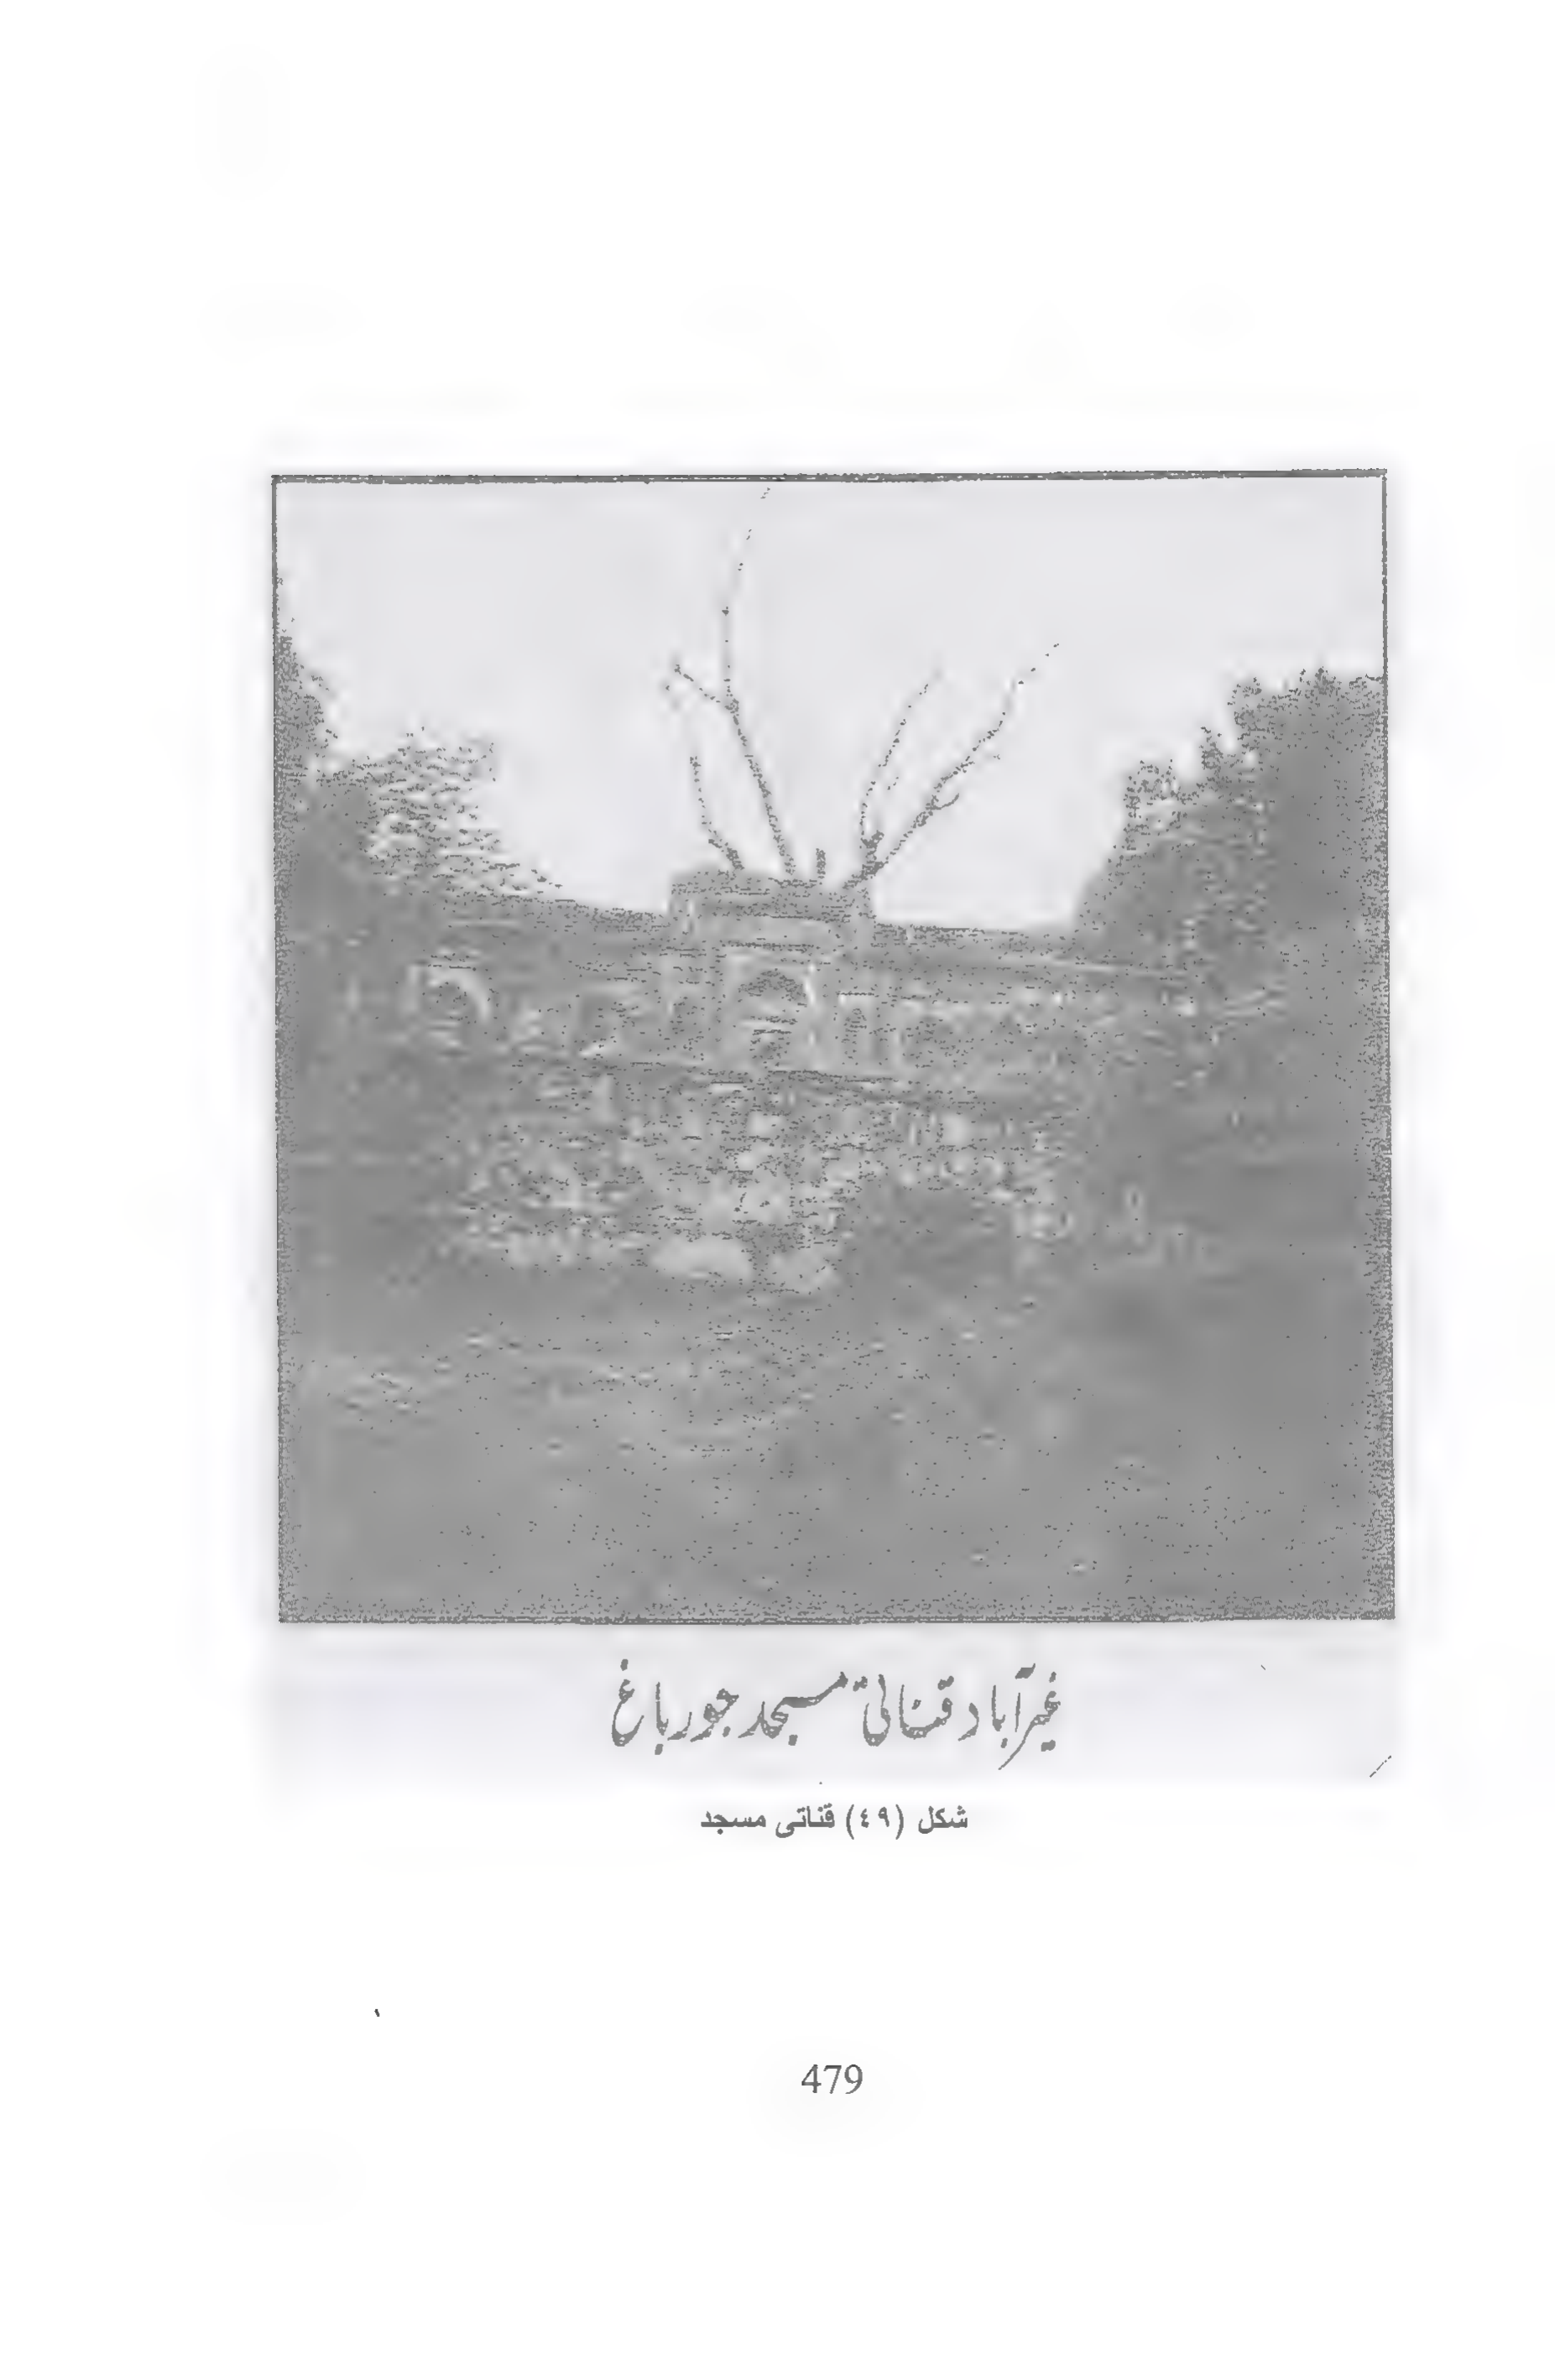 غیر آباد قناتی مسجد جور باغ
شكل (٤٩) قناتى مسجد
479